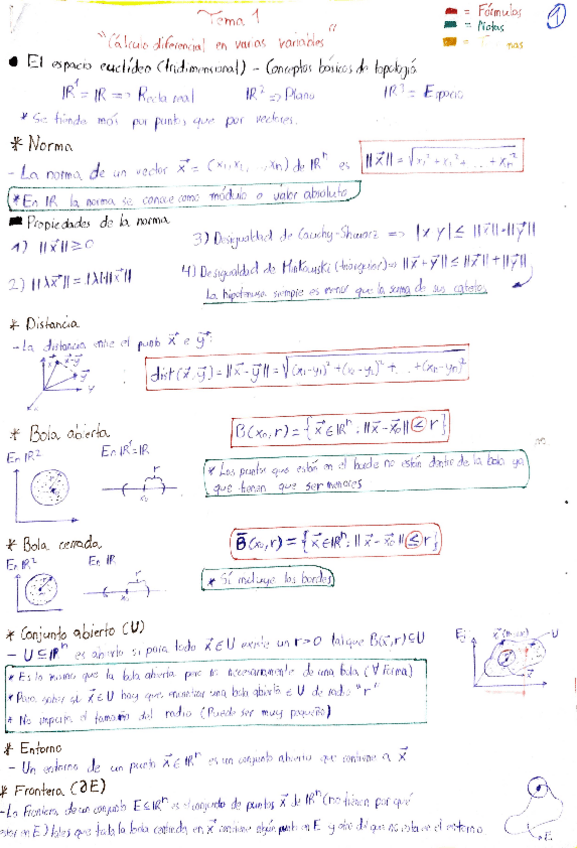 Tema 1
"Cálculo diferencial en varias variables"
= Fórmulas
= Notas
=
1
● El espacio euclídeo (tridimensional) - Conceptos básicos de topología
ℝ¹ = ℝ => Recta real ℝ² => Plano ℝ³ = Espacio
* Se tiende más por puntos que por vectores.
* Norma
- La norma de un vector x⃗ = (x₁, x₂, ..., xn) de ℝⁿ es ||x⃗|| = √(x₁² + x₂² + ... + xn²)
* En ℝ la norma se conoce como módulo o valor absoluto
Propiedades de la norma
1) ||x⃗|| ≥ 0
3) Desigualdad de Cauchy-Shwarz => |x y| ≤ ||x⃗||·||y⃗||
2) ||λx⃗|| = |λ|·||x⃗||
4) Desigualdad de Minkowski (triangular) => ||x⃗ + y⃗|| ≤ ||x⃗|| + ||y⃗||
La hipotenusa siempre es menor que la suma de sus catetos.
* Distancia
- La distancia entre el punto x⃗ e y⃗:
dist(x⃗, y⃗) = ||x⃗ - y⃗|| = √((x₁-y₁)² + (x₂-y₂)² + ... + (xn-yn)²)
* Bola abierta
B(x₀, r) = {x⃗ ∈ ℝⁿ : ||x⃗ - x⃗₀|| ≤ r}
En ℝ² En ℝ¹ = ℝ
* Los puntos que están en el borde no están dentro de la bola ya
que tienen que ser menores
* Bola cerrada
B̄(x₀, r) = {x⃗ ∈ ℝⁿ : ||x⃗ - x⃗₀|| ≤ r}
En ℝ² En ℝ
* Sí incluye los bordes
* Conjunto abierto (U)
- U ⊆ ℝⁿ es abierto si para todo x⃗ ∈ U existe un r > 0 tal que B(x⃗, r) ⊆ U
* Es lo mismo que la bola abierta pero no necesariamente de una bola (∀ forma)
* Para saber si x⃗ ∈ U hay que encontrar una bola abierta ∈ U de radio "r"
* No importa el tamaño del radio (Puede ser muy pequeño)
* Entorno
- Un entorno de un punto x⃗ ∈ ℝⁿ es un conjunto abierto que contiene a x⃗
* Frontera (∂E)
- La frontera de un conjunto E ⊆ ℝⁿ es el conjunto de puntos x⃗ de ℝⁿ (no tienen por qué
estar en E) tales que toda la bola centrada en x⃗ contiene algún punto en E y